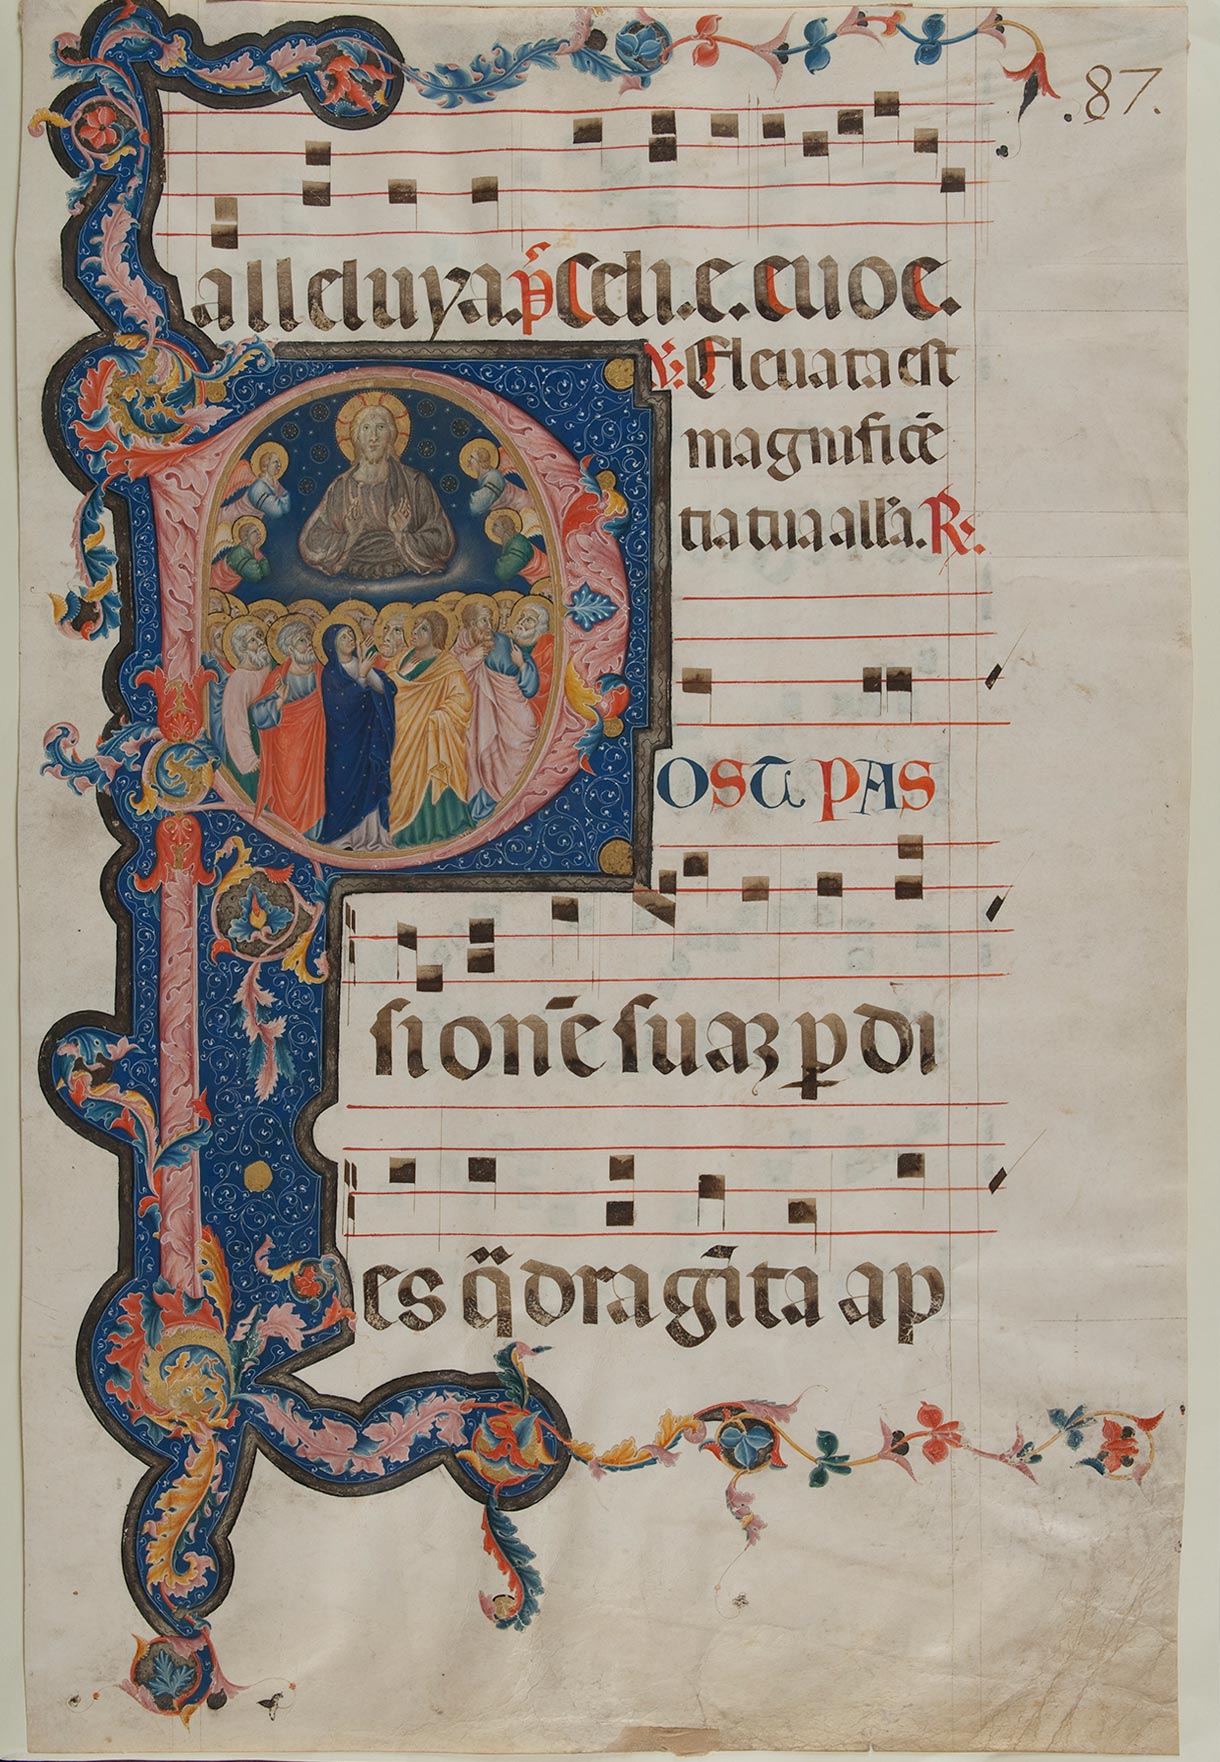 .87.
alleluya. p̄s Celi. e. euoe.
℣. Eleuata est
magnificē
tia tua all'a. R.
OST PAS
sionē suaꝫ ꝑ di
es q̄dragīta ap